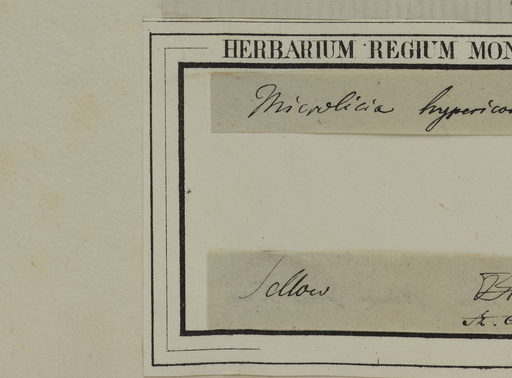 HERBARIUM REGIUM MON
Microlicia hyperico
Sellow